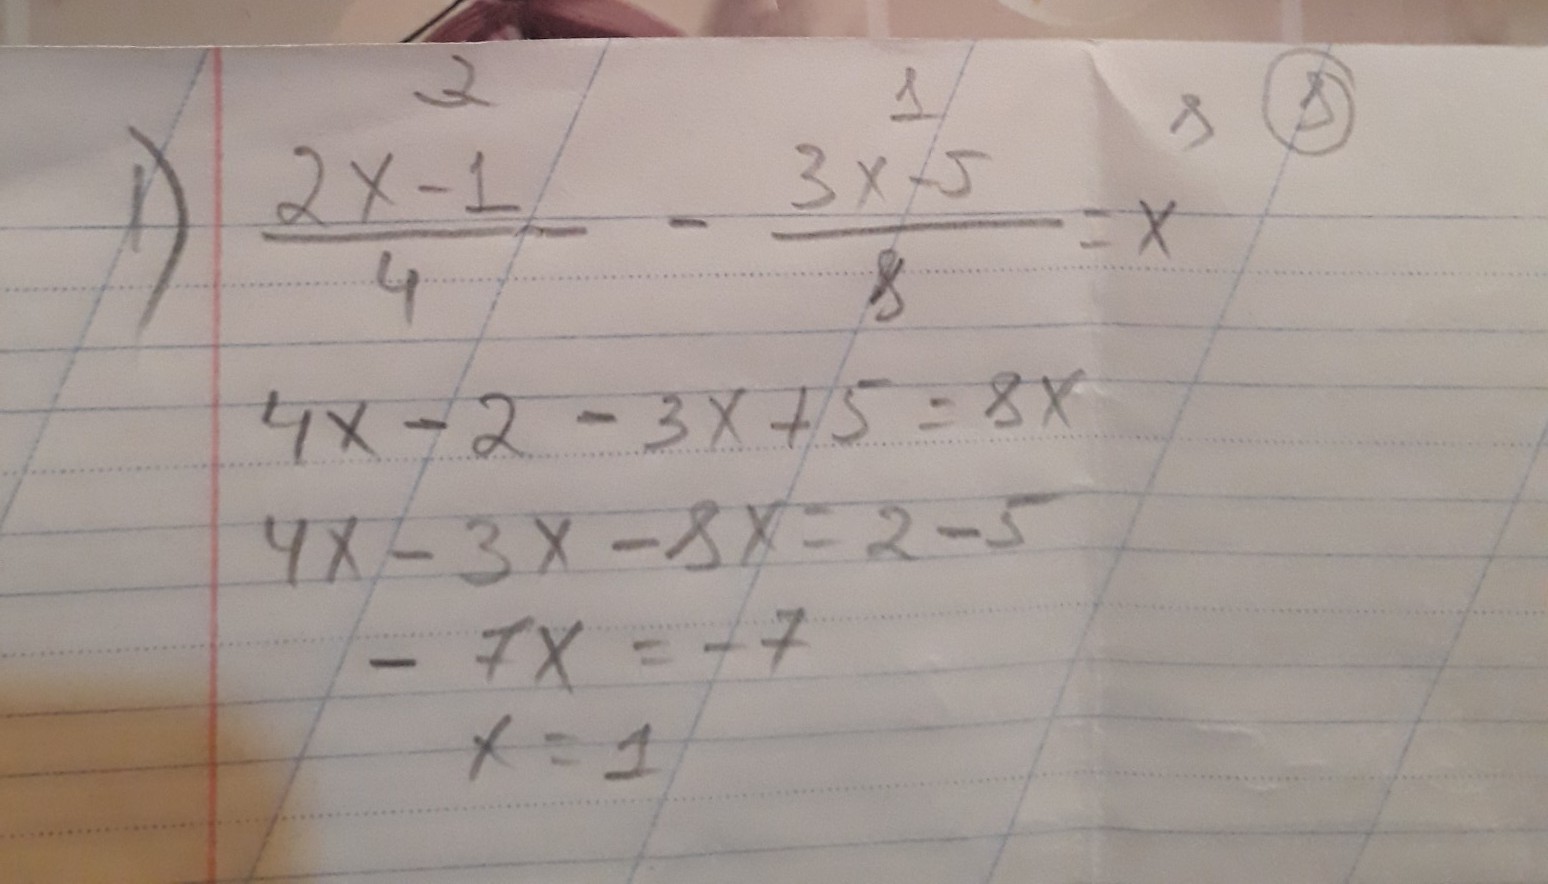 2 1 8 8
1) 2x-1/4 - 3x-5/8 = x
4x - 2 - 3x + 5 = 8x
4x - 3x - 8x = 2 - 5
- 7x = -7
x = 1